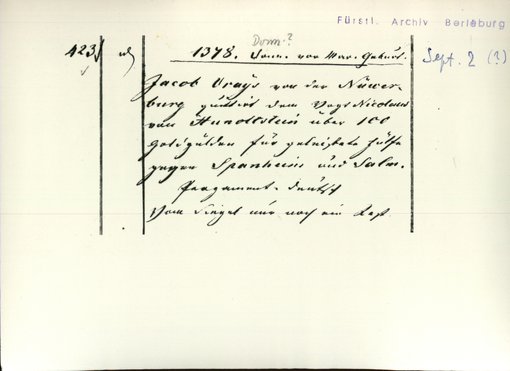 Fürstl. Archiv Berleburg
Donn.?
423 1378. Donn. vor Mar. Geburt. Sept. 2 (?)
Jacob Vrays von der Nuwer-
burg quittirt dem Vogt Nicolaus
von Hunoltstein über 100
Goldgülden für geleistete Hülfe
gegen Spanheim und Salm.
Pergament. deutsch
Vom Siegel nur noch ein Rest